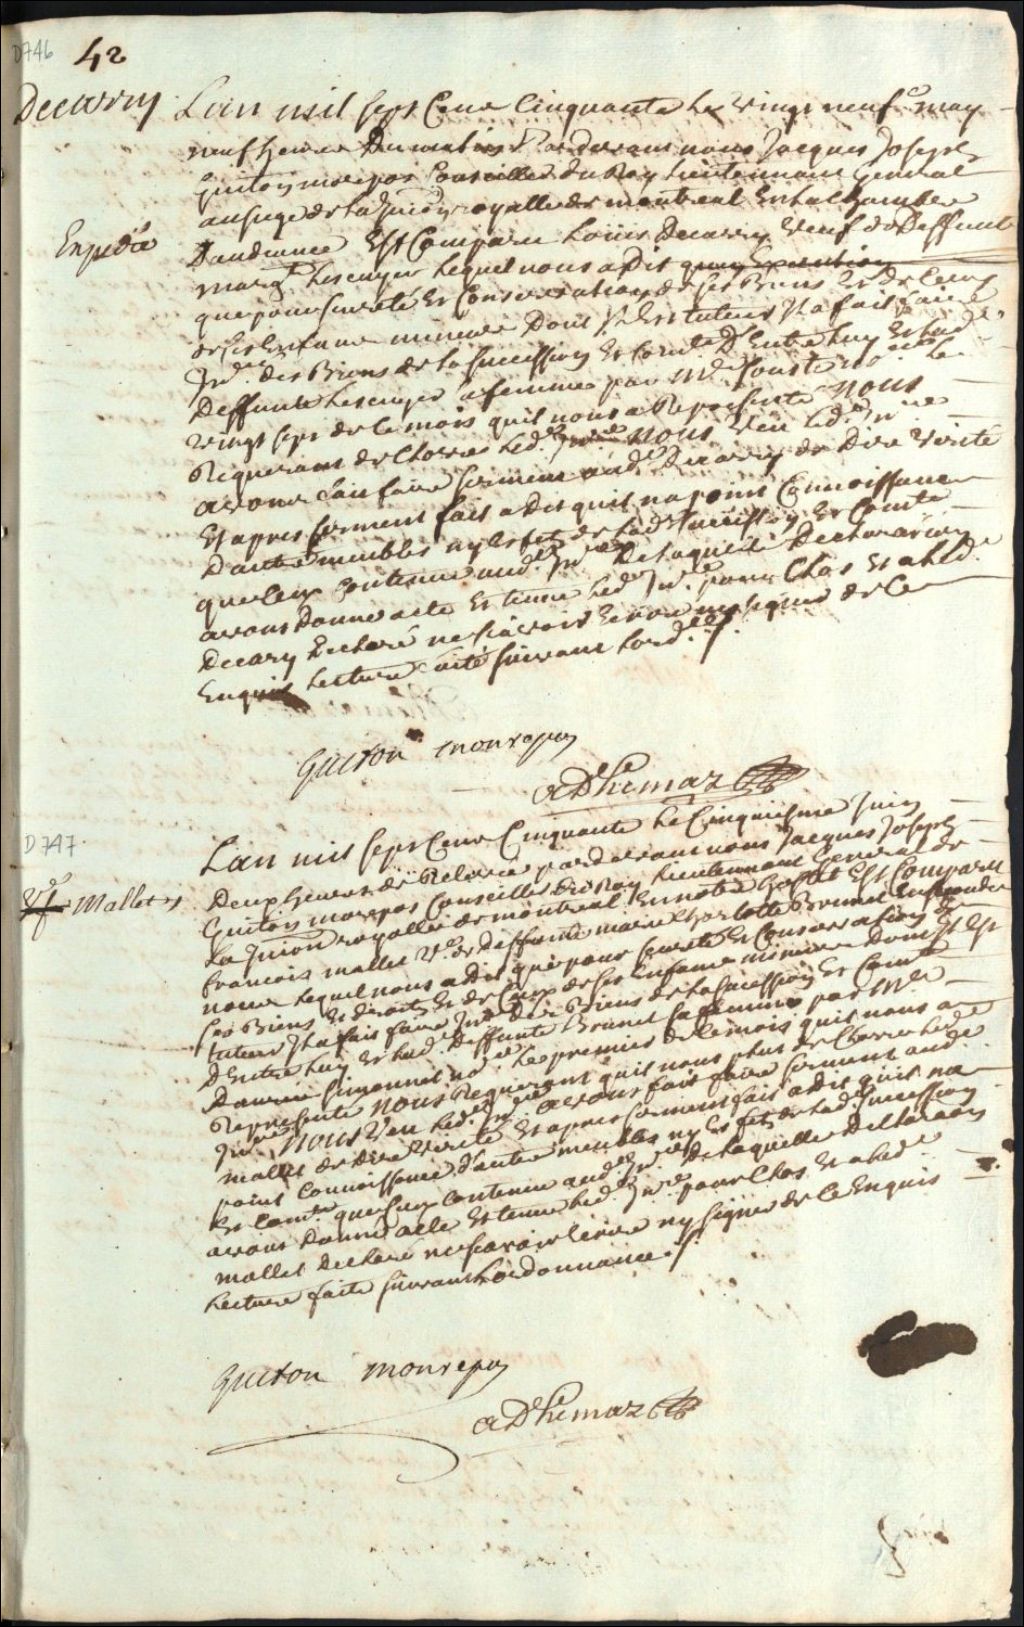 D746
42
Decarry
Lan mil sept Cent Cinquante Le vingt neuf may
neuf heure Du matin Pardevant nous Jacques Joseph
Guiton monrepos Conseiller du Roy Lieutennant General
au siege de la Juion royalle de montreal En la Chambre
Expediée
D'audiance Est Comparu Louis Decarry Veuf de Deffunte
marg.te Lescuyer Lequel nous a Dit
que pour sureté Et Conservation de ses Biens Et de Ceux
de ses Enfans mineurs Dont Il Est tuteur Il a fait faire
Jnd.re des Biens de la succession Et Com.té D'Entre luy Et lad.
Deffunte Lescuyer sa femme par M.e no.re Le
vingt sept de Ce mois quil nous a Representé nous
Requerant de Clorre led. Jn.re Nous Veu led. Jn.re
avons fait faire serment aud. Decarry de Dire verité
Et apres serment fait a dit quil na point Connoissance
Dautre meubles ny Effets de lad. succession Et Com.té
que Ceux Contenus aud. Jn.re De laquelle Declaration
avons Donné acte Et tenu led. Jn.re pour Clos Et a led.
Decary Declaré ne sçavoir Ecrire ny signer de Ce
Enquis Lecture faite suivant Lord.ce
Guiton monrepos
aDhemar
D747
Lan mil sept Cent Cinquante Le Cinquiesme Juin
Deux heures de Relevée pardevant nous Jacques Joseph
V.f Mallet
Guiton monrepos Conseiller du Roy Lieutennant General de
La Juion royalle de montreal En notre hostel Est Comparu
francois mallet V.f de deffunte marie Charlotte Brunet
nous Lequel nous a dit que pour sureté Et Conservation de
ses Biens Et droits Et de Ceux de ses Enfans mineurs dont Il Est
tuteur Il a fait faire Jn.re Des Biens de la succession Et Com.té
D'Entre luy Et lad. Deffunte Brunet sa femme par M.e
Danre Simonnet no.re Le premier de Ce mois quil nous a
Representé nous Requerant quil nous plut de Clorre led.
Jn.re Nous Veu led. Jn.re avons fait faire serment aud.
mallet de Dire Verité Et apres serment fait a dit quil na
point Connoissance d'autre meubles ny Effets de lad. succession
Et Com.té que Ceux Contenus aud. Jn.re De laquelle Declaraon
avons Donné acte Et tenu led. Jn.re pour Clos Et a led.
mallet Declaré ne sçavoir Ecrire ny signer de Ce Enquis
Lecture faite suivant Lordonnance
Guiton monrepos
aDhemar